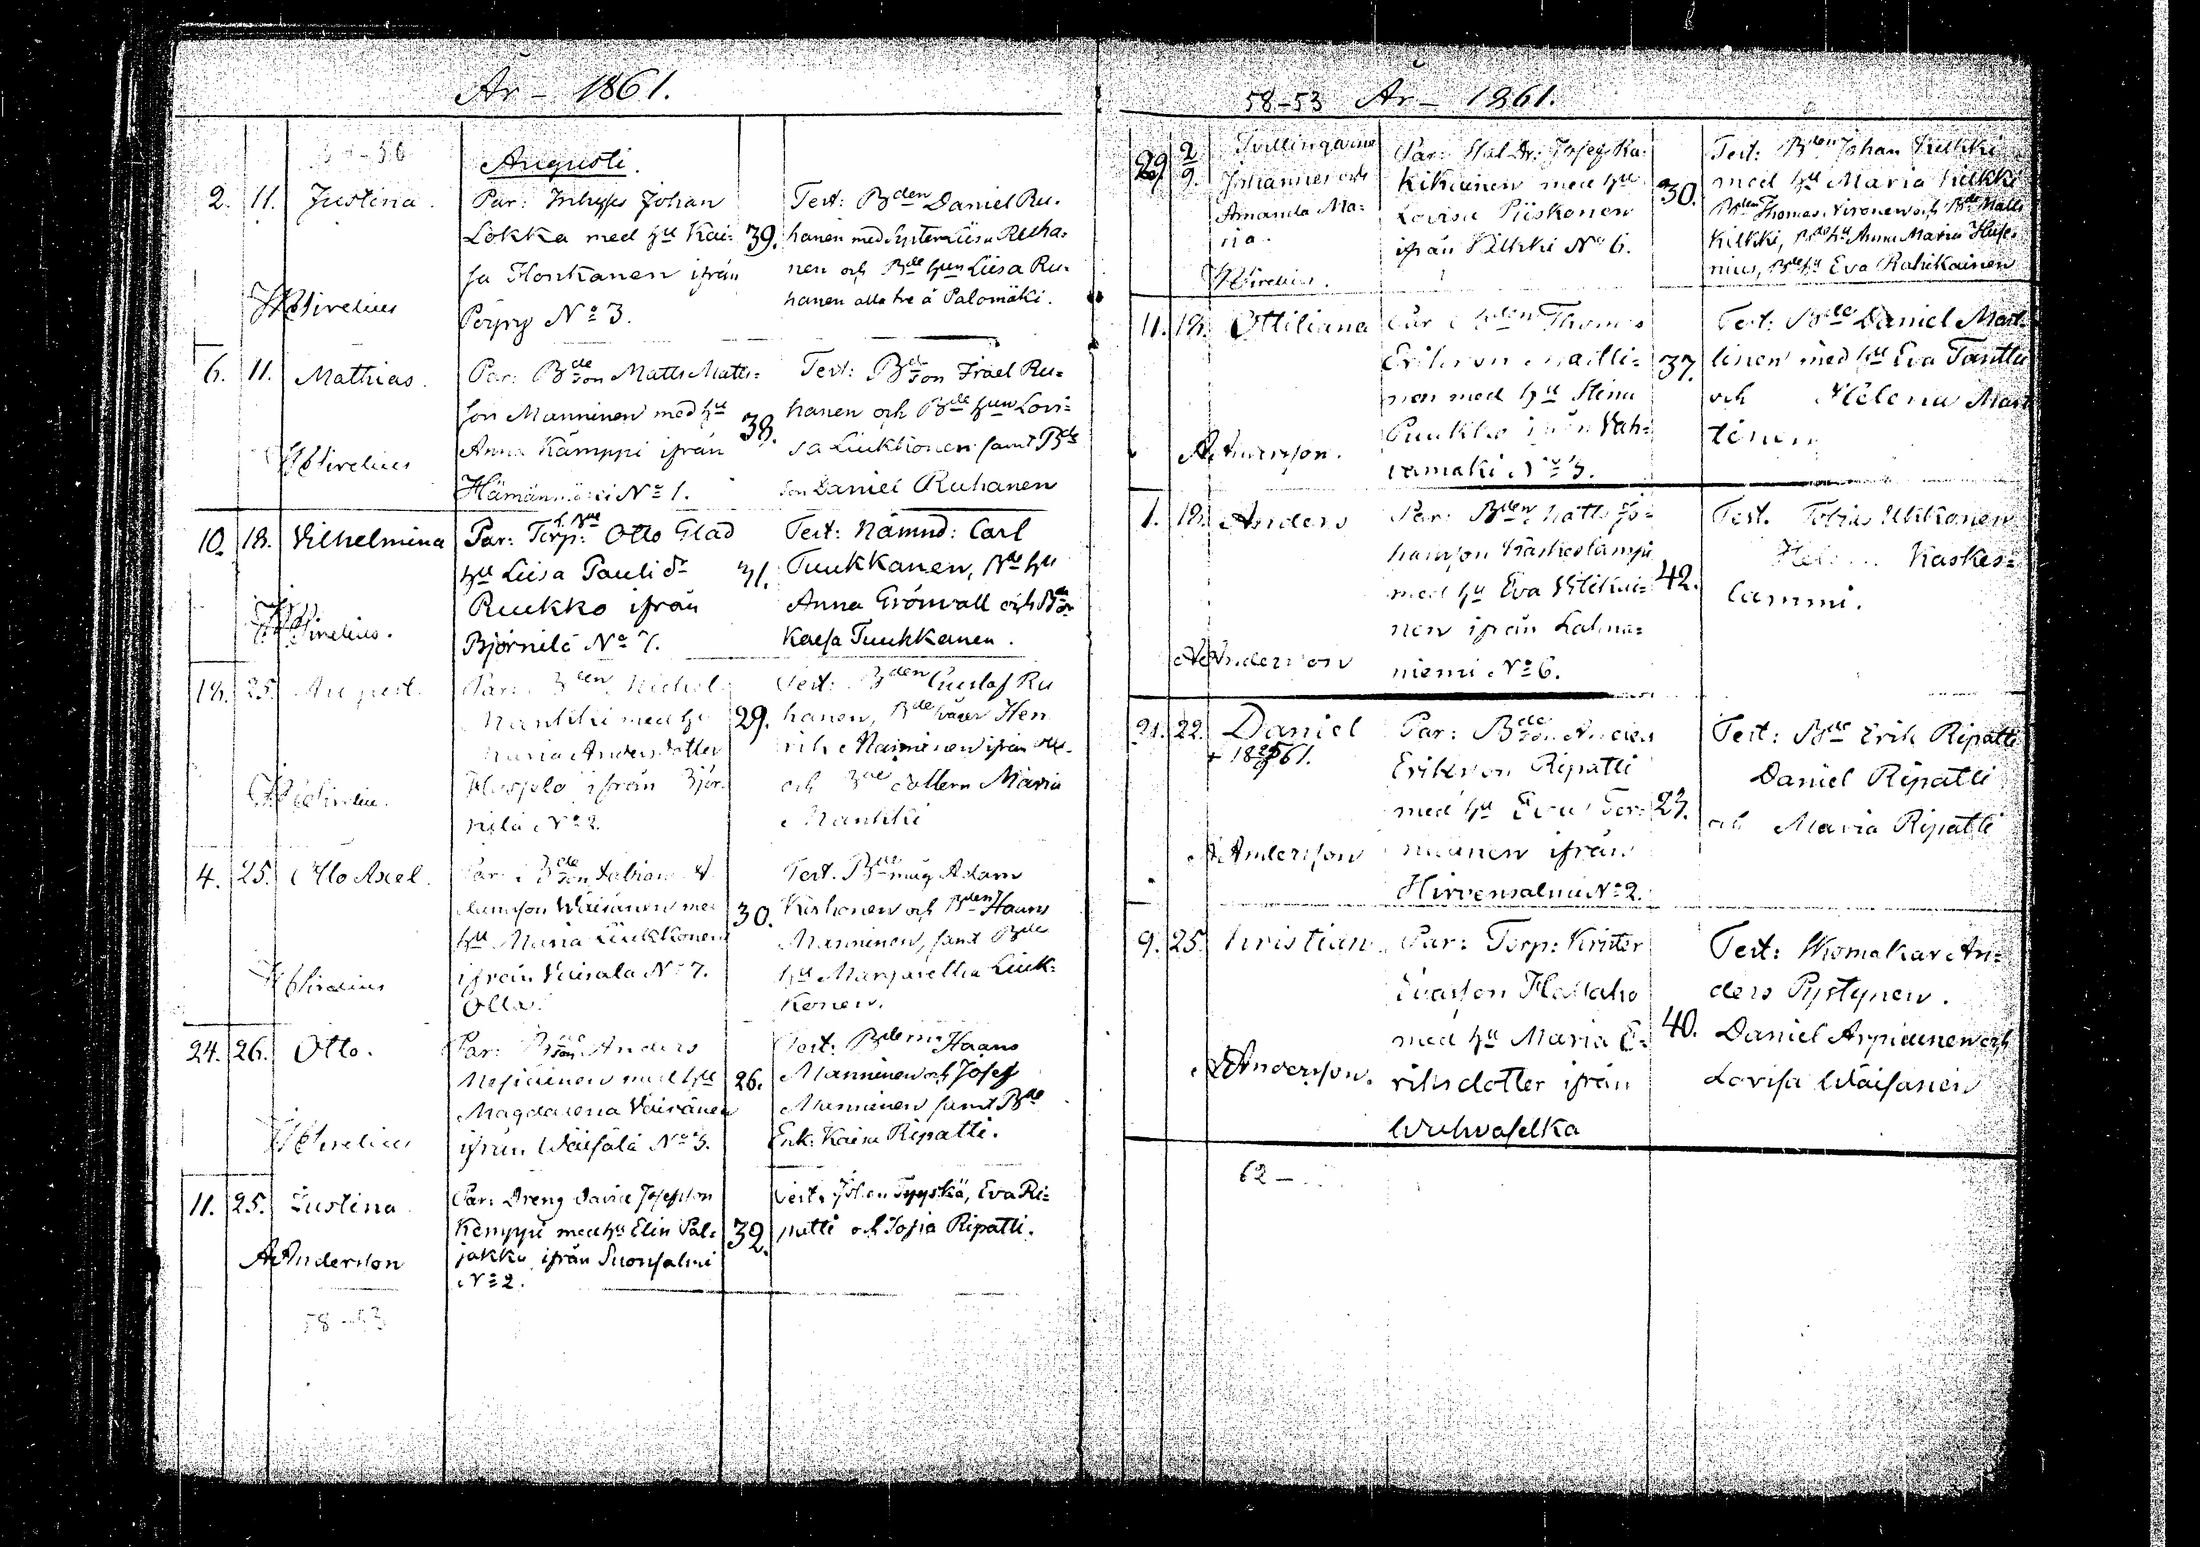 År – 1861.
Augusti.
2. 11. Justina.
Par: Inhyses Johan
Lokka med hu Kai-
sa Honkanen ifrån
Pöyry No 3.
39.
Test: Bden Daniel Ru-
hanen med System Liisa Ruha-
nen och Bde hun Liisa Ru-
hanen alla tre å Palomäki.
Hirelius
6. 11. Mathias.
Par: Bde son Matts Matts-
son Manninen med hu
Anna Kämppi ifrån
No 1.
38.
Test: Bde son Israel Ru-
hanen och Bde hun Lovi-
sa Liukkonen samt Bde
son Daniel Ruhanen
Hirelius
10. 18. Vilhelmina
Par: Torp: Otto Glad
hu Liisa Pauli dr
Ruukko ifrån
Björnilä No 7.
31.
Test: Nämnd: Carl
Tuukkanen, Nde hu
Anna Grönvall och
Kaisa Tuukkanen.
Hirelius.
18. 25. August.
Par: Bden Michel
Mankki med hu
Maria Andersdotter
ifrån Björ-
nilä No 2.
29.
Test: Bden Gustaf Ru
hanen, Bde Hen
rik Manninen ifrån
och Bde dottern Maria
Mankki
Hirelius.
4. 25. Otto Axel.
Par: Bde son Fabian A-
damsson Wäisänen med
hu Maria Liukkonen
ifrån Väisälä No 7.
Olla.
30.
Test. Bde måg Adam
Kiskonen och Bden Haans
Manninen, samt Bde
hu Margaretha Liuk-
konen.
Hirelius
24. 26. Otto.
Par: Bde son Anders
med hu
Magdalena Väisänen
ifrån Wäisälä No 3.
26.
Test: Bde måg Haans
Manninen och Josef
Manninen samt Bde
Enk. Kaisa Ripatti.
Hirelius
11. 25. Justina.
Par: Dreng David Josefsson
Kemppi med hu Elin Pal-
jakka ifrån Suonsalmi
No 2.
32.
Test: Johan Tyyskä, Eva Ri-
patti och Sofia Ripatti.
A Anderson
58–53
58–53 År – 1861.
29 2/9. Tvillingarne
Johannes och
Amanda Ma-
ria.
Par: Josef Ra-
hikainen med hu
Lovisa Piiskonen
ifrån Kilkki No 6.
30.
Test: Bden Johan Kilkki
med hu Maria Kilkki
Bden Thomas Nironen och Bde Matts
Kilkki, Bde hu Anna Maria
nius, Bde hu Eva Rahikainen
Hirelius.
11. 18. Ottiliana
Par: Bden Thomas
Erikson Martti-
nen med hu Stina
Puukko ifrån Vah-
vamäki No 3.
37.
Test: Bde Daniel Mart-
tinen med hu Eva Tanttu
och Helena Mart
tinen
A Andersson.
1. 18. Anders
Par: Bden Matts Jo-
hansson Kaskeslampi
med hu Eva
nen ifrån Lahna-
niemi No 6.
42.
Test. Tobias Ukkonen
Kaskes-
lammi.
A Anderson
21. 22. Daniel
Par: Bde son Anders
Erikson Ripatti
med hu Eva Tor-
niainen ifrån
Hirvensalmi No 2.
23.
Test: Bde Erik Ripatti
Daniel Ripatti
och Maria Ripatti
A Andersson
9. 25. Kristian
Par: Torp: Krister
Ivarson Hallaho
med hu Maria E-
riksdotter ifrån
Wuhvaselka
40.
Test: Skomakar An-
ders Pystynen.
Daniel Arpiainen och
Lovisa Wäisänen
A Andersson.
62 –